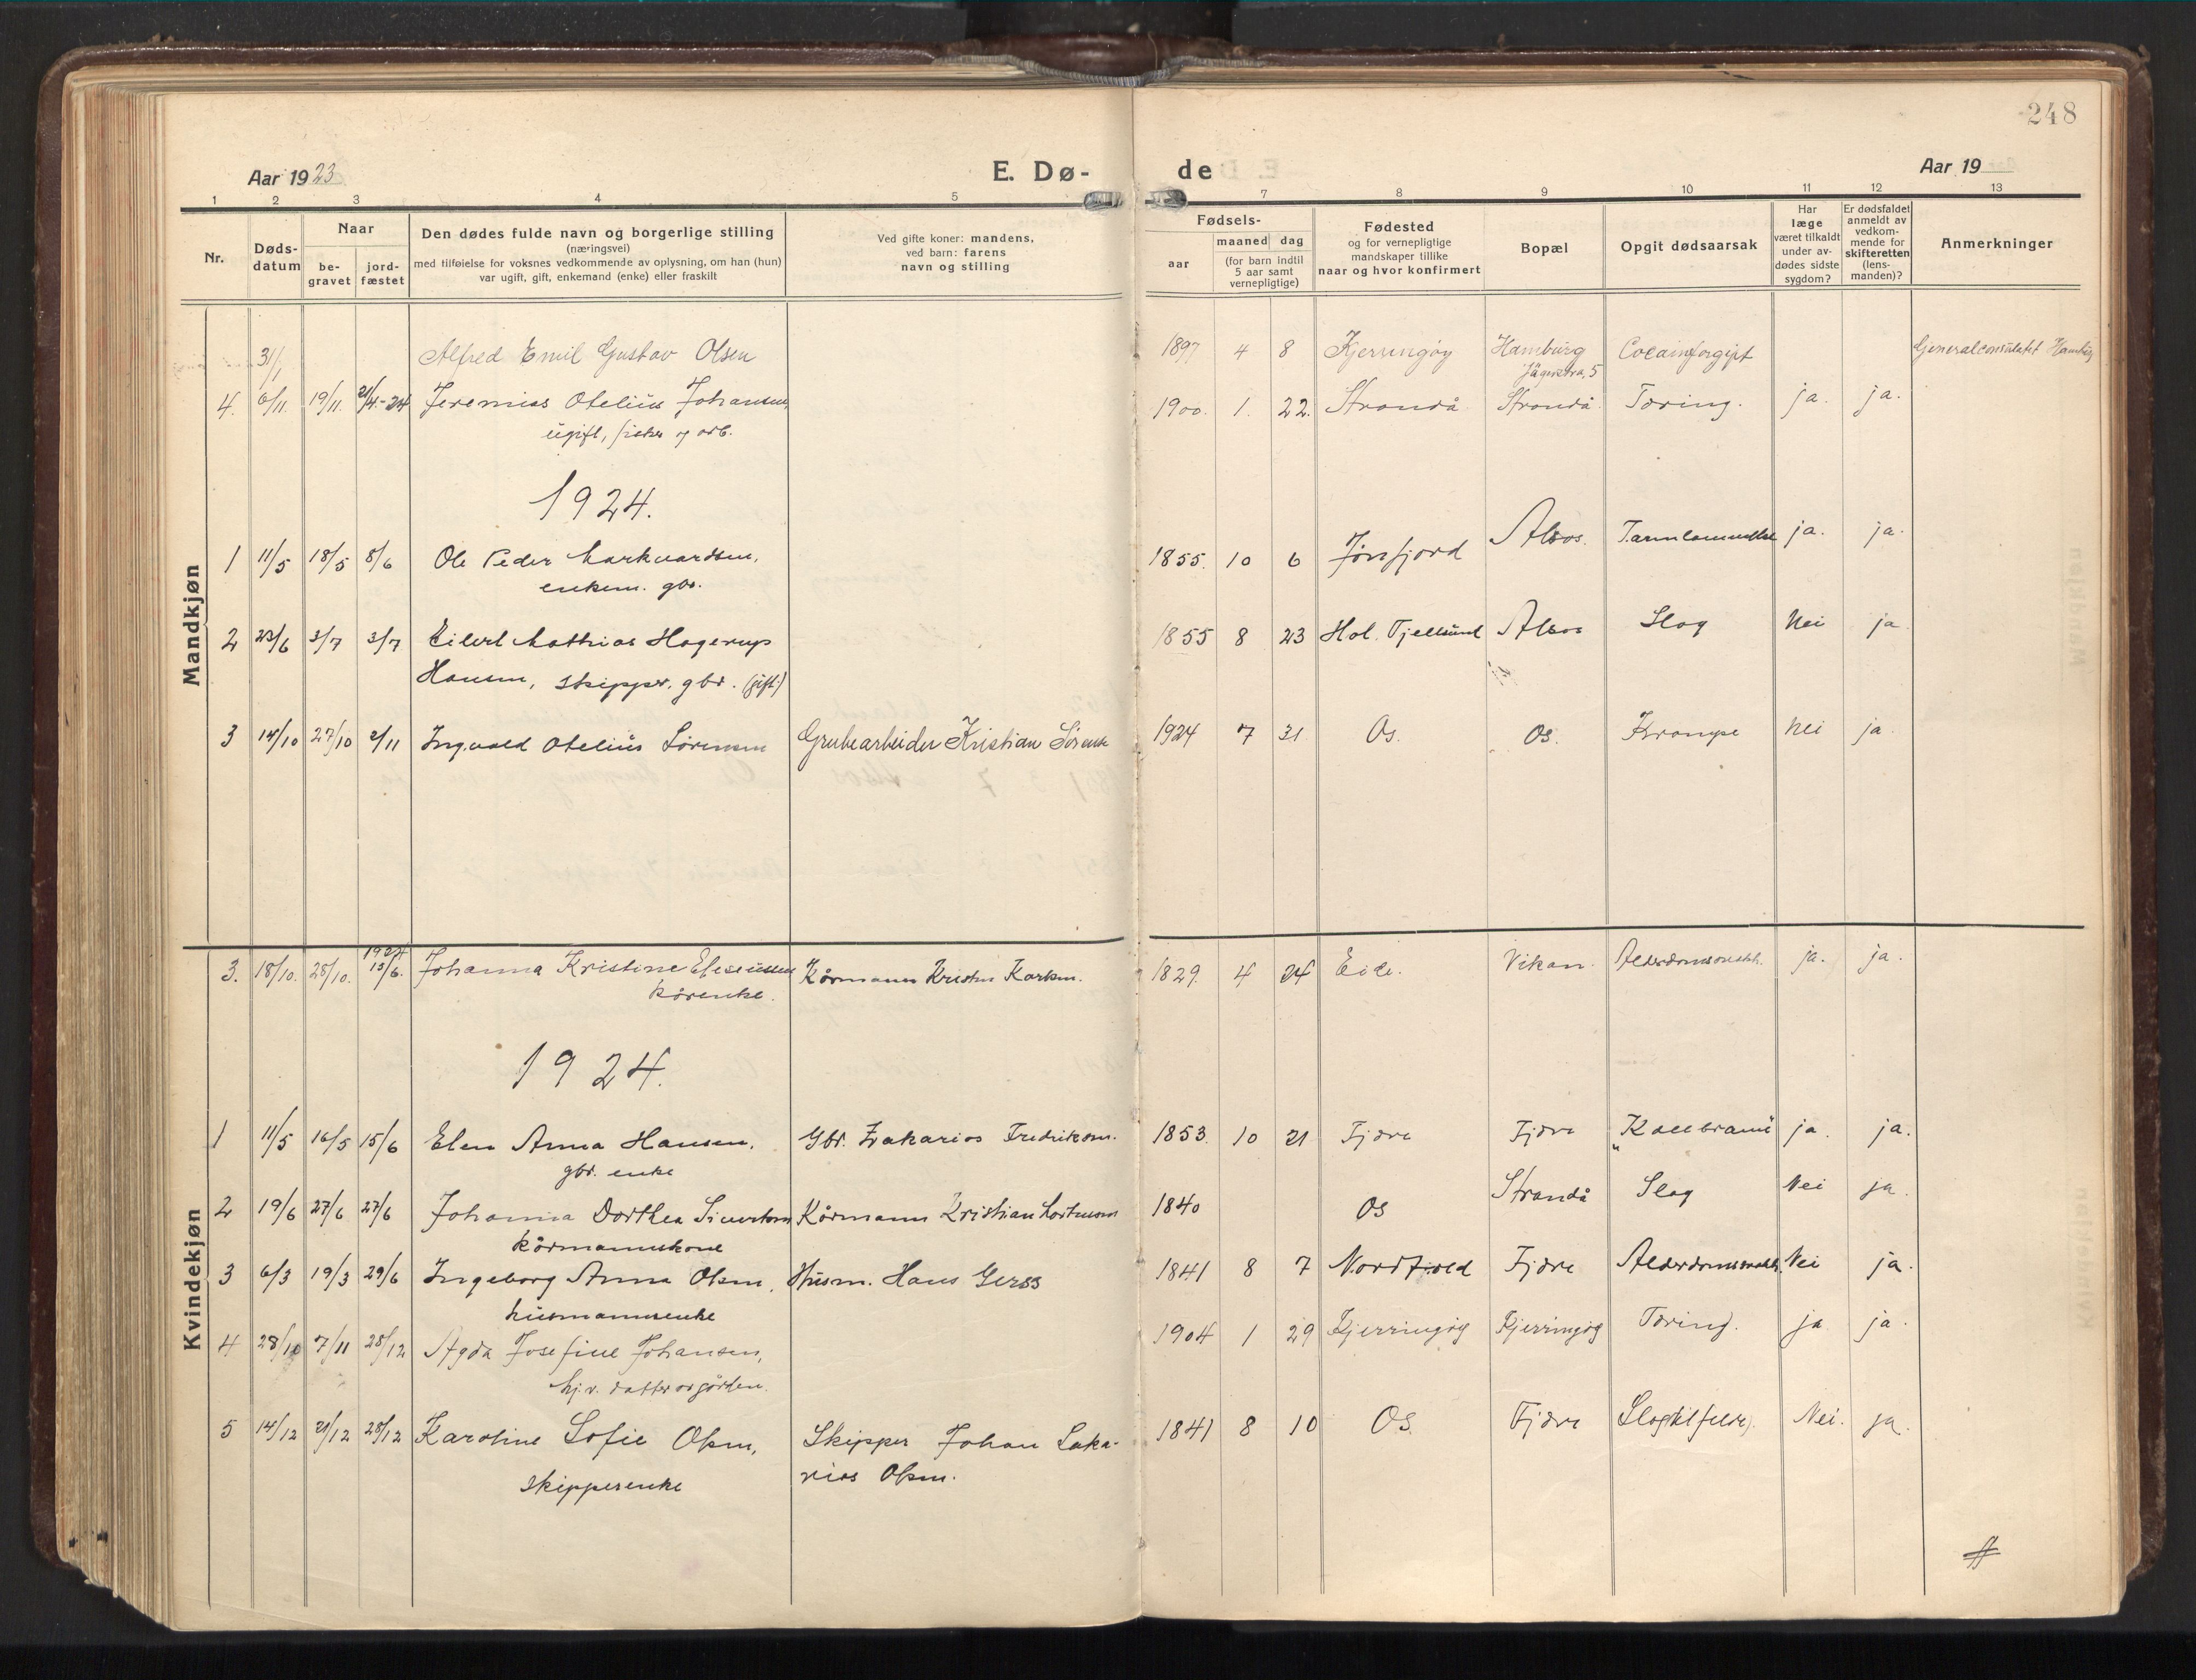 248
Aar 1923
E. Dø-
de
Aar 19
1 2 3 4 5 7 8 9 10 11 12 13
Nr.
Døds-
datum
Naar
be-
gravet
jord-
fæstet
Den dødes fulde navn og borgerlige stilling
(næringsvei)
med tilføielse for voksnes vedkommende av oplysning, om han (hun)
var ugift, gift, enkemand (enke) eller fraskilt
Ved gifte koner: mandens,
ved barn: farens
navn og stilling
Fødsels-
aar
maaned dag
(for barn indtil
5 aar samt
vernepligtige)
Fødested
og for vernepligtige
mandskaper tillike
naar og hvor konfirmert
Bopæl
Opgit dødsaarsak
Har
læge
været tilkaldt
under av-
dødes sidste
sygdom?
Er dødsfaldet
anmeldt av
vedkom-
mende for
skifteretten
(lens-
manden)?
Anmerkninger
Mandkjøn
31/1 Alfred Emil Gustav Olsen 1897 4 8 Kjerringøy Hamburg Cocainforgift Generalconsulatet Hamburg
5
4. 6/11 19/11. 21/4-24 Jeremias Otelius Johansen, 1900. 1. 22. Strandå Strandå Tæring. ja. ja.
ugift, fisker og arb.
1924.
1 11/5 18/5 8/6 Ole Peder Markvardsen, 1855. 10 6 Alsos. ja. ja.
enkem. gbr.
2 23/6 3/7 3/7 Eilert Mathias Hagerup 1855 8 23 Hol. Tjellsund Alsos Slag Nei ja.
Hansen, skipper, gbr. (gift)
3 14/10 27/10 2/11 Ingvald Otelius Sørensen Grubearbeider Kristian Sørens 1924 7 31 Os. Os. Krampe Nei ja.
Kvindekjøn
1924
3. 18/10. 28/10. 15/6. Johanna Kristine Eliseussen Kårmann 1829. 4 24 Eide. Vikan. ja. ja.
kårenke.
1924.
1 11/5 16/5 15/6 Elen Anna Hansen, Gbr. Zakarias Fredriksen. 1853. 10 21 Fjære Fjære "Kaldbrann" ja. ja.
gbr. enke
2 19/6 27/6 27/6 Johanna Dorthea Sivertsen Kårmann Kristian 1840 Os Strandå Slag Nei ja.
kårmannskone
3 6/3 19/3 29/6 Ingeborg Anna Olsen, Husm. Hans 1841 8 7 Nordfold Fjære Nei ja.
husmannsenke
4 28/10 7/11 28/12 Agda Josefine Johansen, 1904 1 29 Kjerringøy Kjerringøy Tæring. ja ja.
hj.v. datter av gården.
5 14/12 21/12 28/12 Karoline Sofie Olsen, Skipper Johan Saka- 1841 8 10 Os. Fjære Slagtilfelde) Nei. ja.
skipperenke rias Olsen.